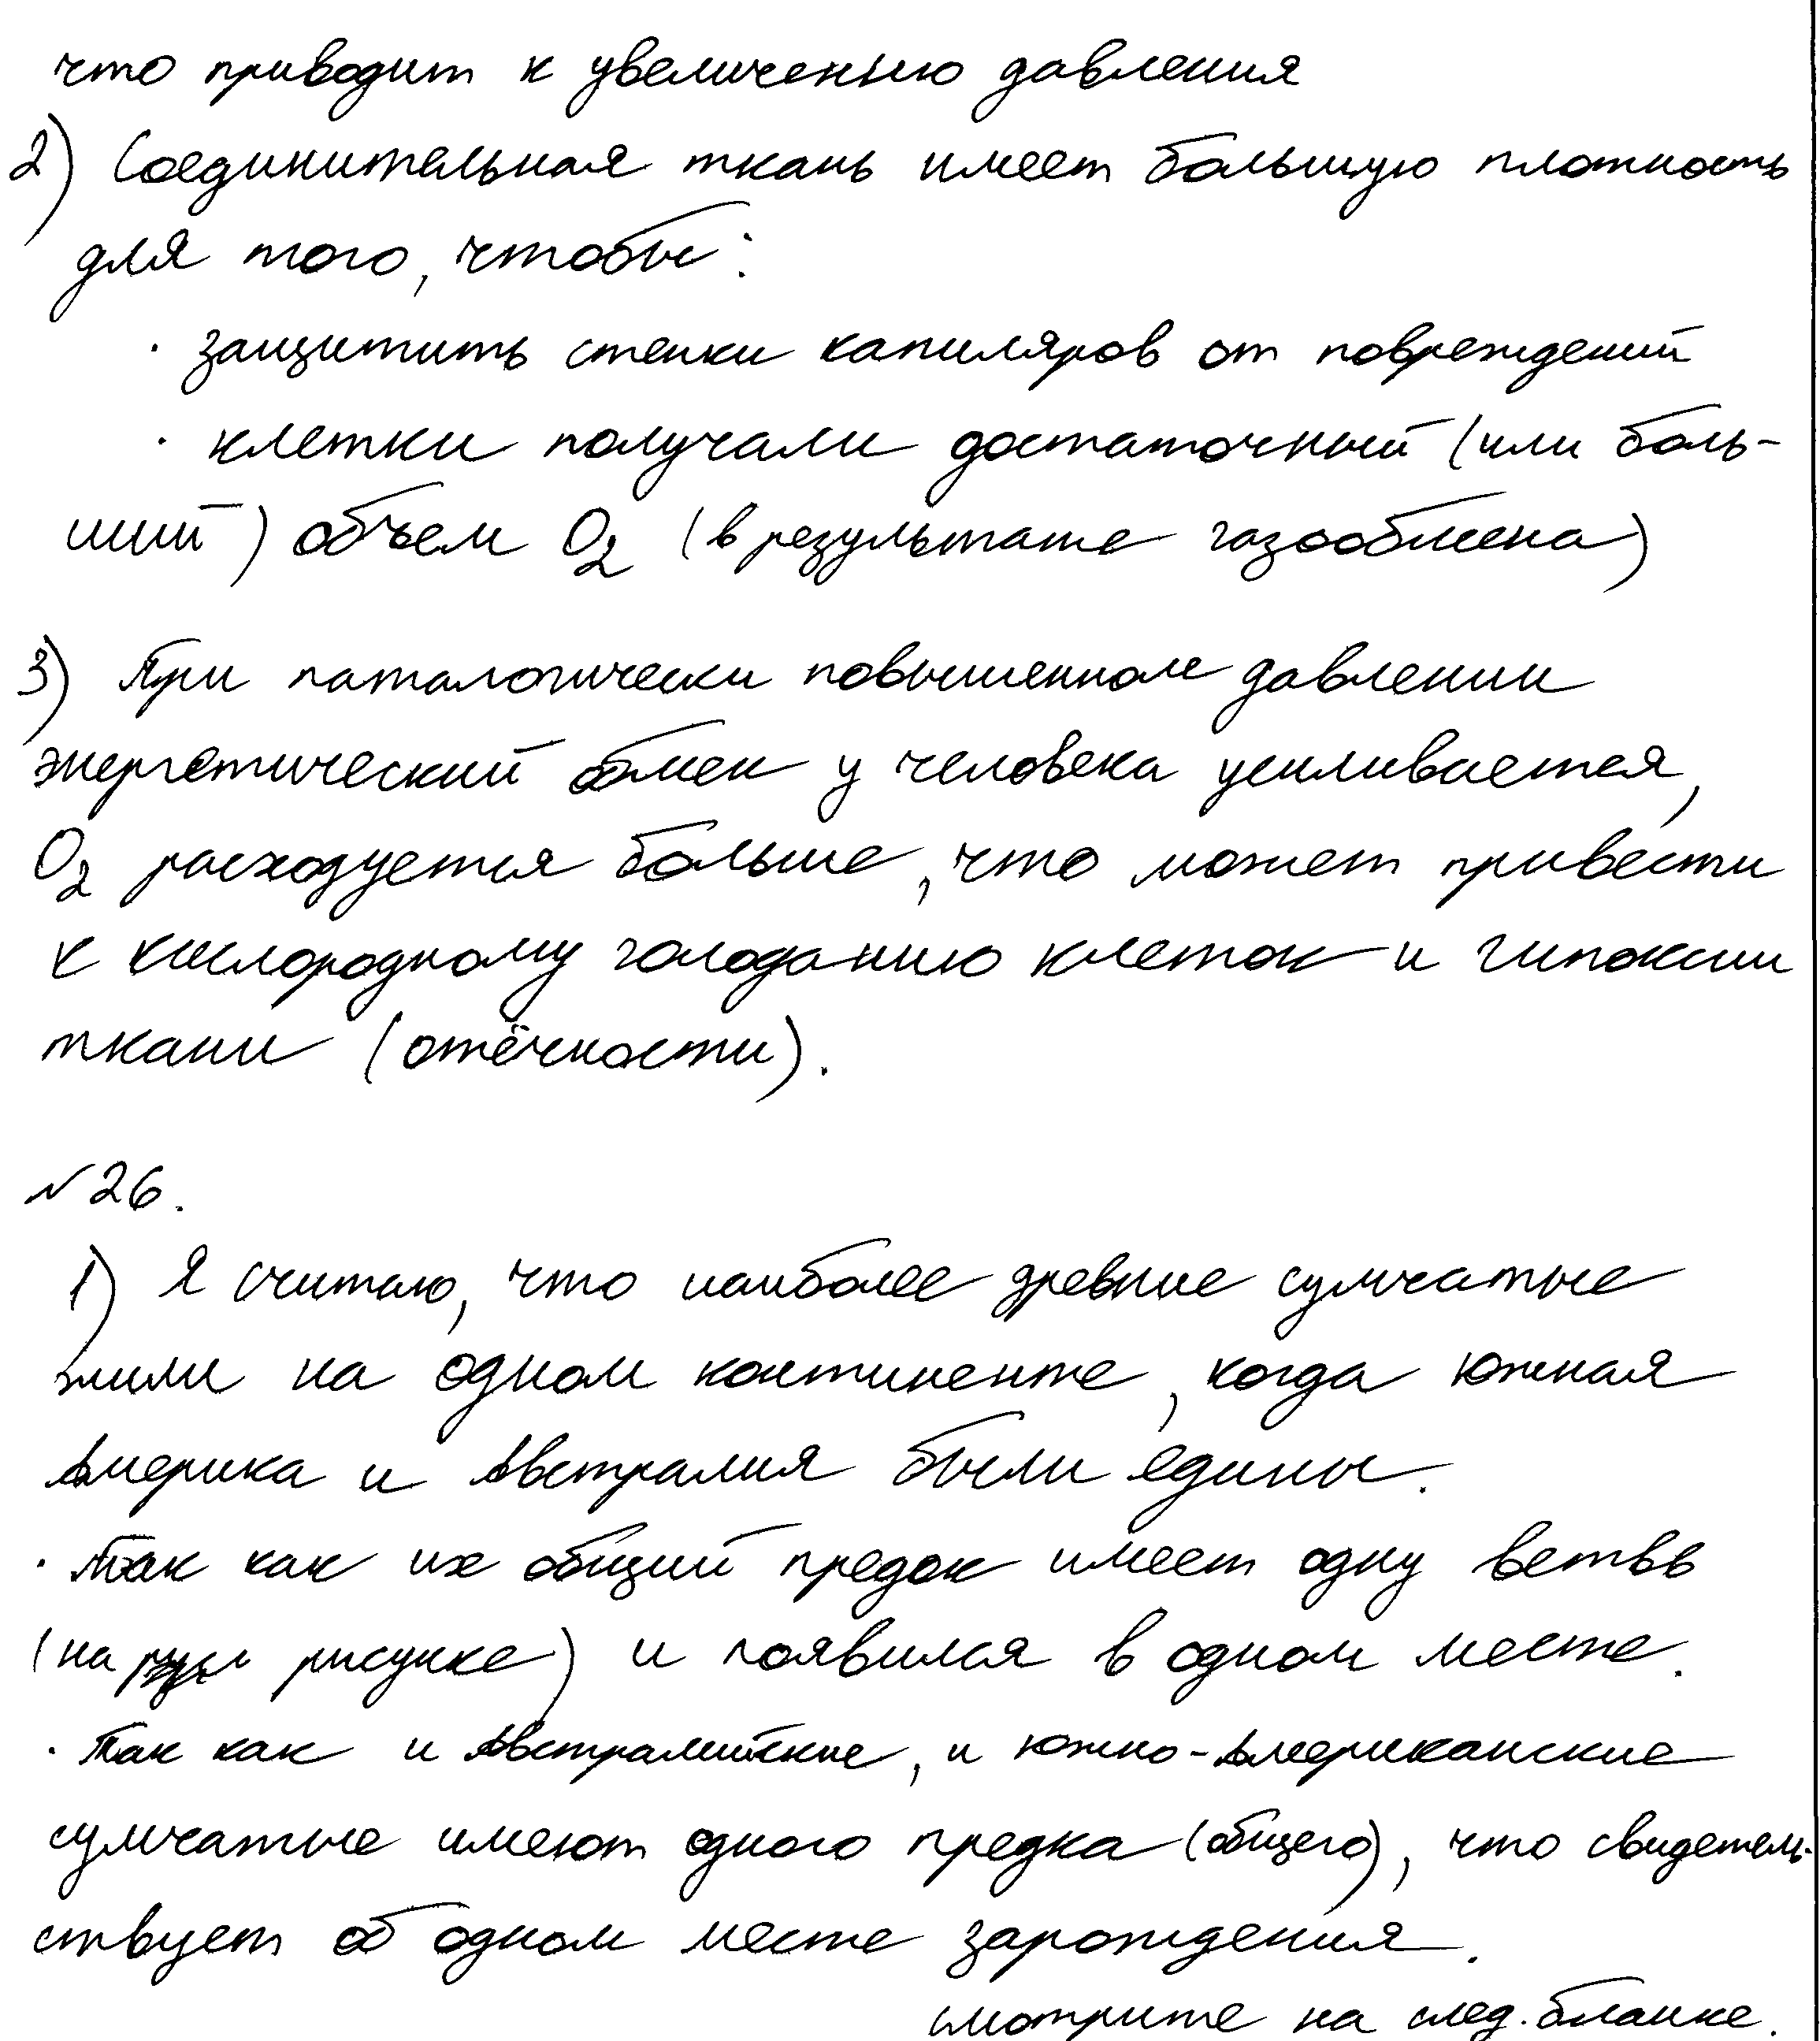 что приводит к увеличению давления
2) Соединительная ткань имеет большую плотность
для того, чтобы:
· защитить стенки капиляров от повреждений
· клетки получали достаточный (или боль-
ший) объем O₂ (в результате газообмена)
3) При паталогически повышенном давлении
энергетический обмен у человека усиливается,
O₂ расходуется больше, что может привести
к кислородному голоданию клеток и гипоксии
ткани (отёчности).
№26.
1) Я считаю, что наиболее древние сумчатые
жили на одном континенте, когда Южная
Америка и Австралия были едины.
· Так как их общий предок имеет одну ветвь
(на рисунке) и появился в одном месте.
· Так как и Австралийские, и южно-Американские
сумчатые имеют одного предка (общего), что свидетель-
ствует об одном месте зарождения.
смотрите на след. бланке.